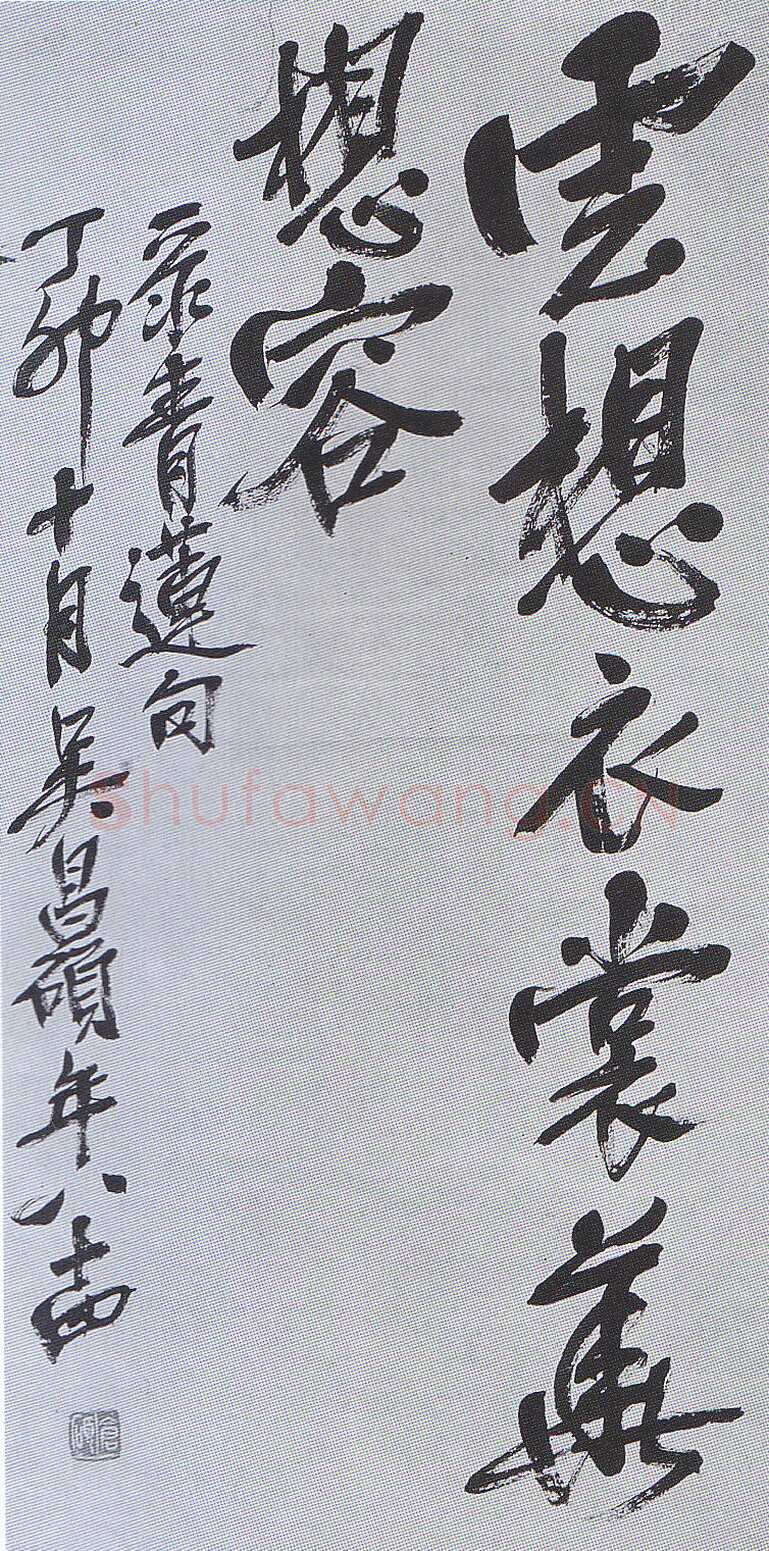 雲想衣裳華
想容
彔青蓮句
丁卯十月吳昌碩年八十四
倉碩
Shufawang.CN